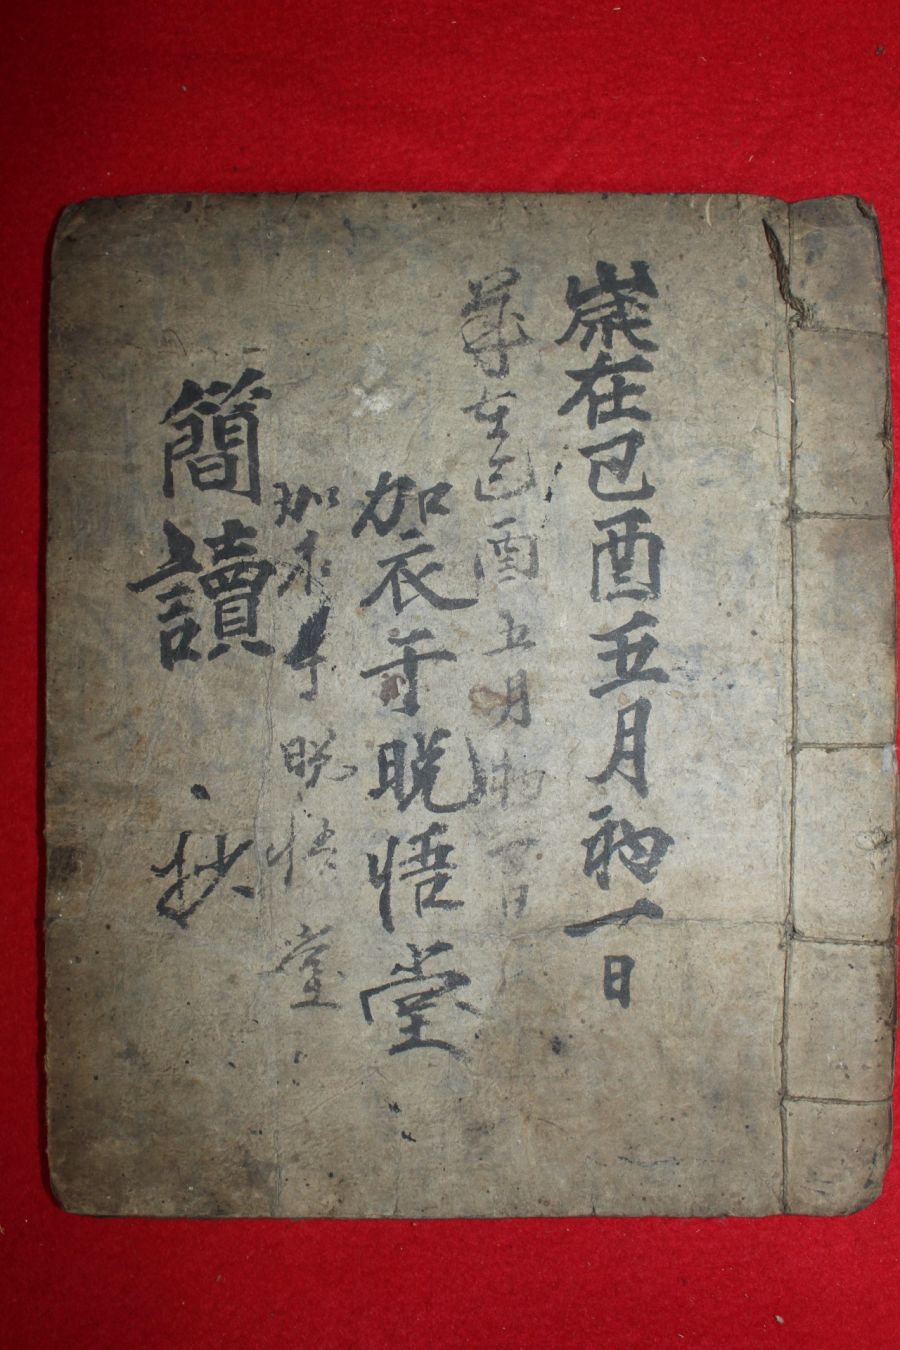 歲在己酉五月初一日
歲在己酉五月初一日
加衣于晩悟堂
加衣于晩悟堂
簡讀 抄